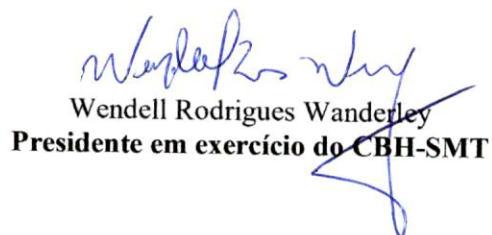 Wendell Rodrigues Wanderley
Presidente em exercício do CBH-SMT